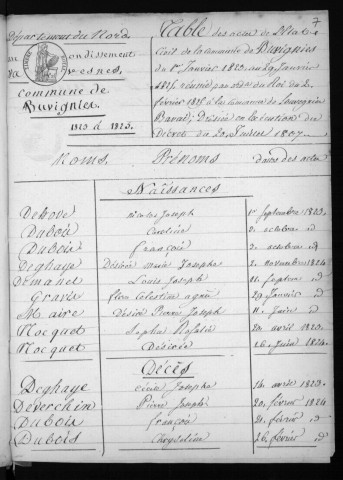 7
Département du Nord
Arrondissement
d'Avesnes
commune de
Buvignies
1823 à 1825
Table des actes de l'État
Civil de la commune de Buvignies
du 1er Janvier 1823 au 29 Janvier
1825 réunie par ordce du Roi du 2
février 1825 à la commune de Louvignies
Bavai; Dressée en exécution du
Décret du 20 Juillet 1807
Noms Prénoms dates des actes
Naissances
Dehove Nicolas Joseph 1er Septembre 1823
Dubois 2 octobre id
Dubois françois 2 octobre id
Deghaye Désirée marie Josephe 2 novembre 1824
Demanet Louis Joseph 11 Septbre id
Gravix flore celestine agnès 29 Janvier id
Maire Désiré Pierre Joseph 11 Juin id
Nocquet Sophie Rosalie 20 avril 1823
Nocquet Désirée 26 Juin 1824
Décès
Deghaye Josephe 14 avril 1823
Deverchin Pierre Joseph 20 février 1824
Dubois françois 21 février id
Dubois Chryseline 26 février id